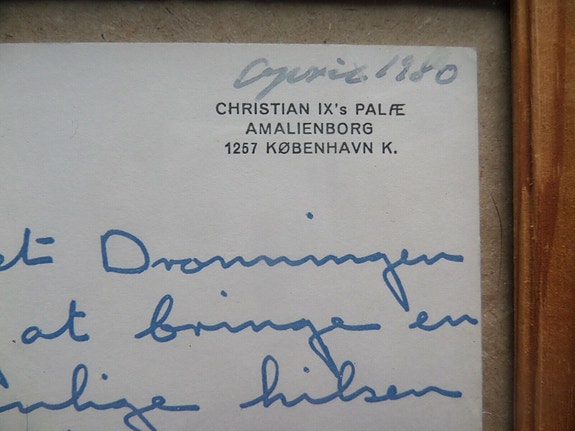 April 1980
CHRISTIAN IX's PALÆ
AMALIENBORG
1257 KØBENHAVN K.
Dronningen
at bringe en
hilsen